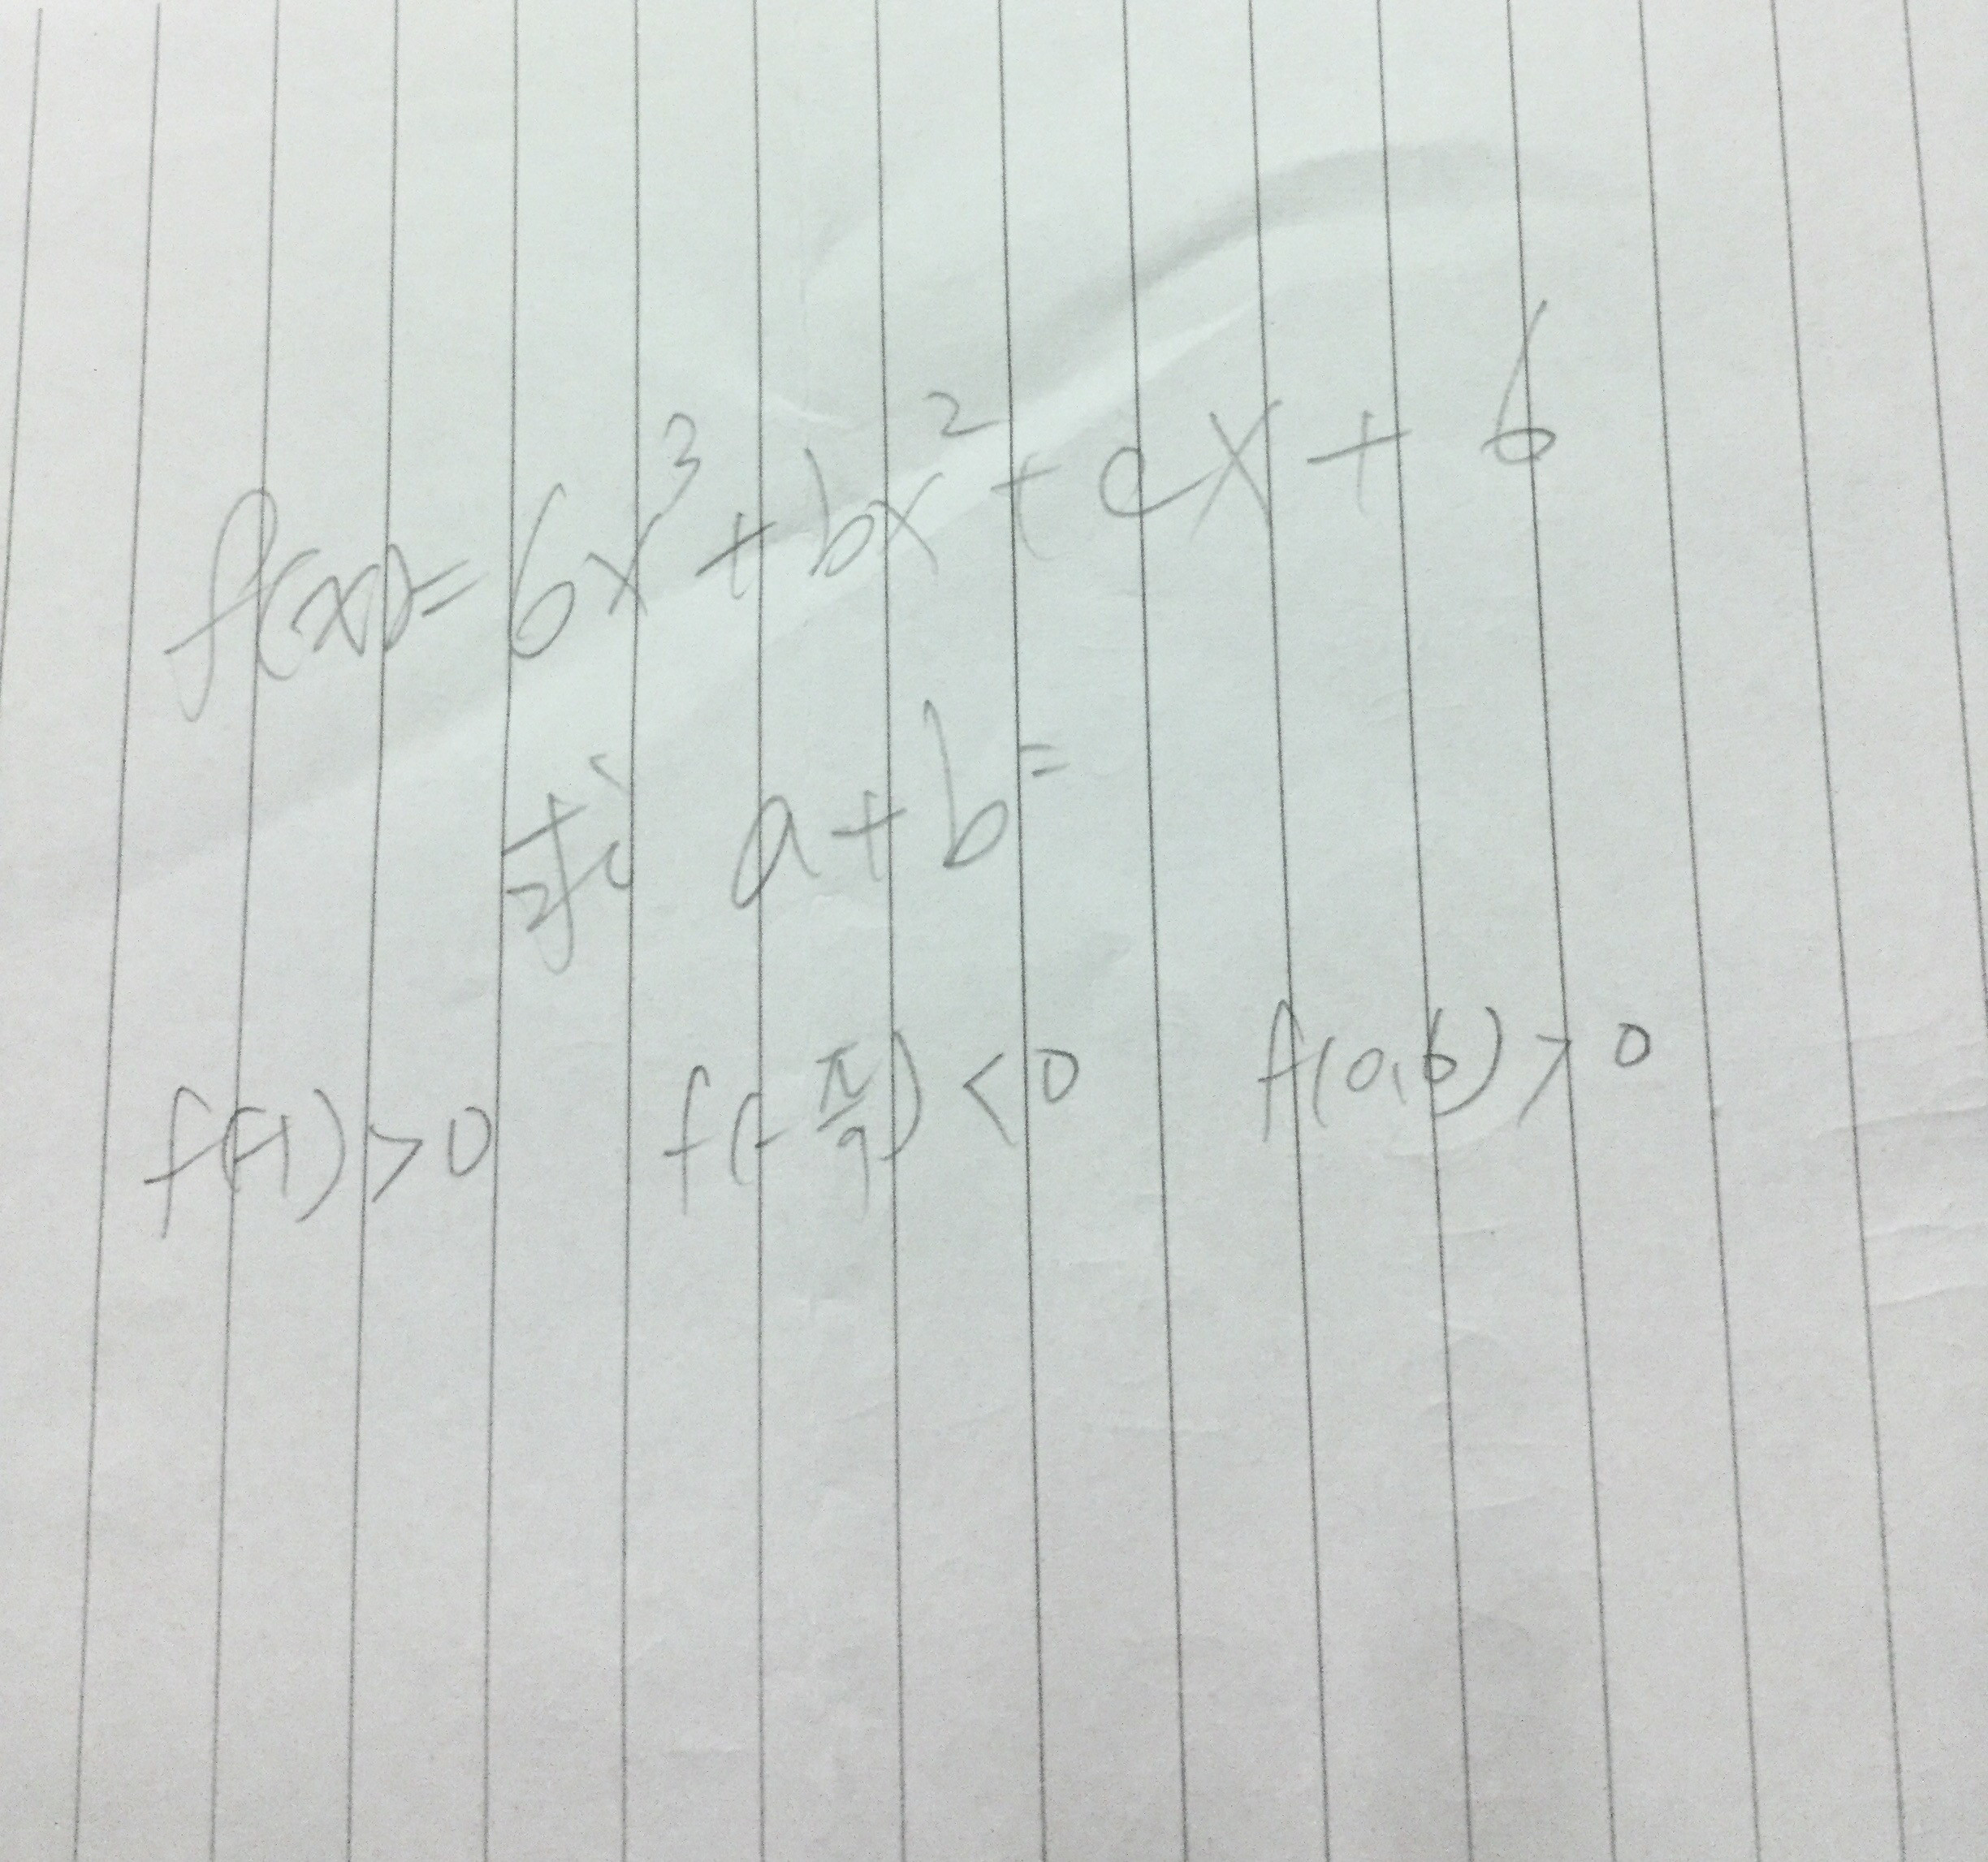 f(x)=6x³+bx²+cx+6
求 a+b=
f(-1)>0 f(-π/9)<0 f(0,6)>0